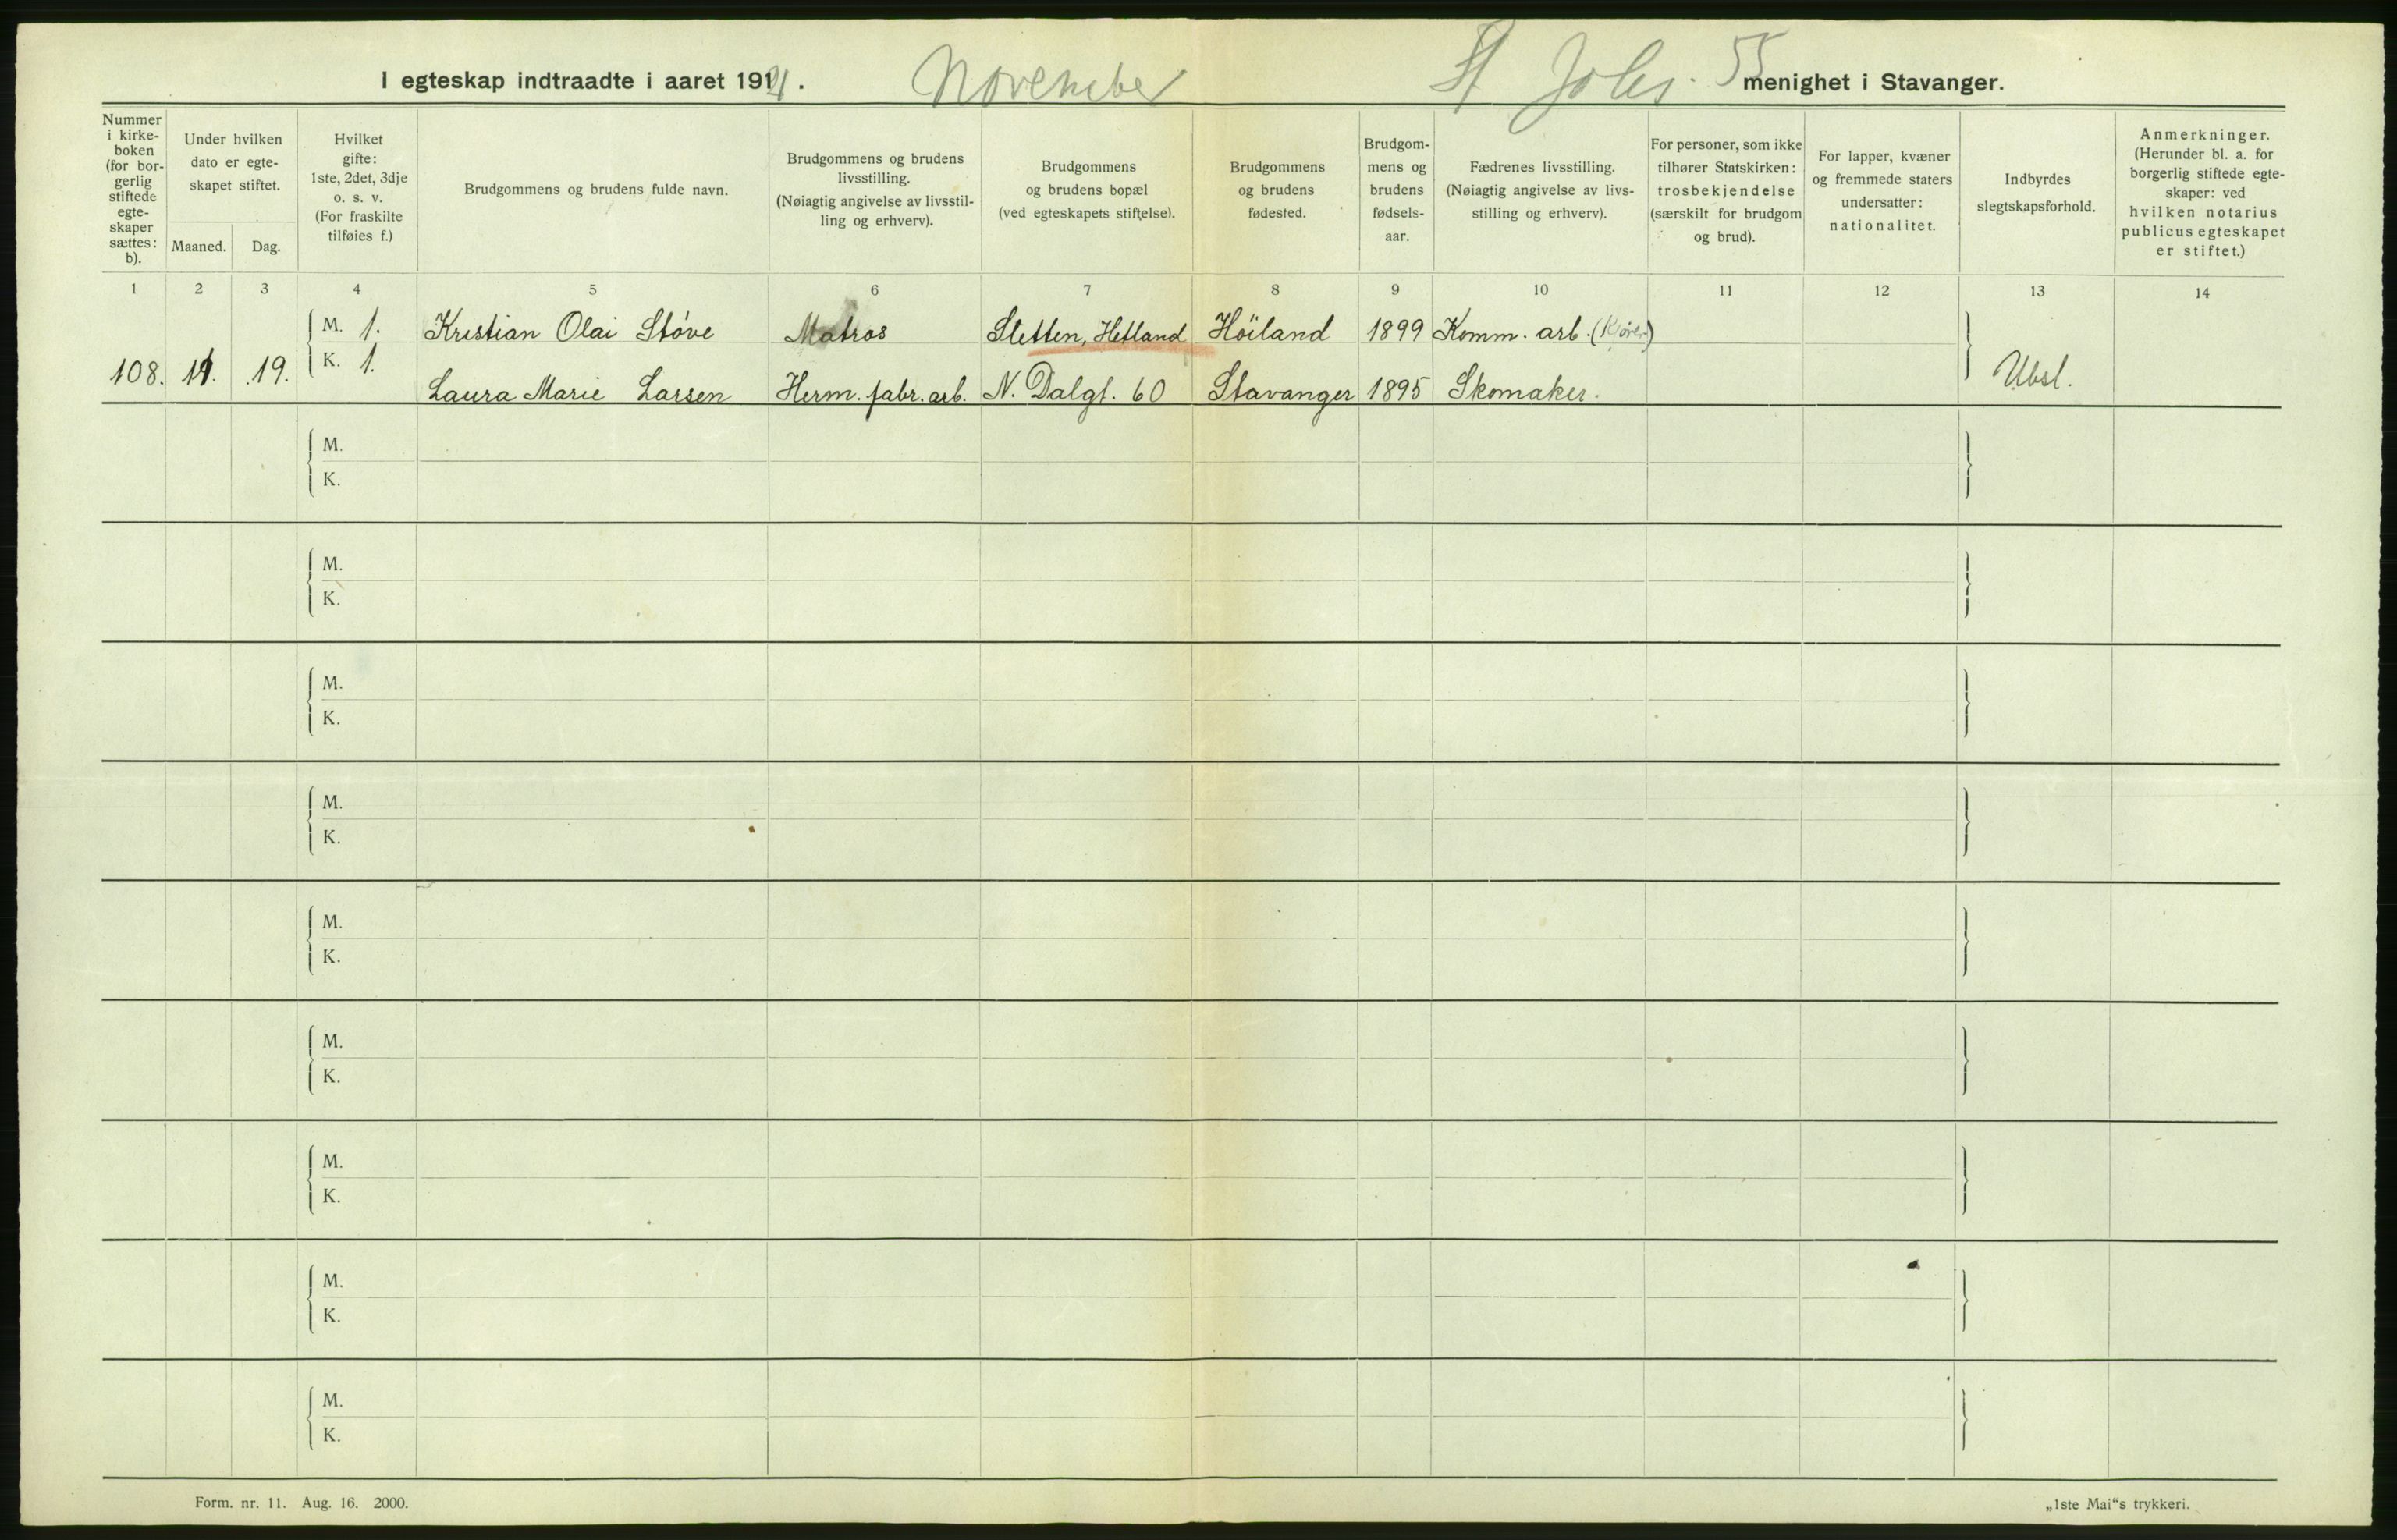 I egteskap indtraadte i aaret 1921. November St Johs. 55 menighet i Stavanger.
Nummer i kirke-boken (for bor-gerlig stiftede egte-skaper sættes: b).
Under hvilken dato er egte-skapet stiftet.
Maaned.
Dag.
Hvilket gifte: 1ste, 2det, 3dje o. s. v. (For fraskilte tilføies f.)
Brudgommens og brudens fulde navn.
Brudgommens og brudens livsstilling. (Nøiagtig angivelse av livsstil-ling og erhverv).
Brudgommens og brudens bopæl (ved egteskapets stiftelse).
Brudgommens og brudens fødested.
Brudgom-mens og brudens fødsels-aar.
Fædrenes livsstilling. (Nøiagtig angivelse av livs-stilling og erhverv).
For personer, som ikke tilhører Statskirken: trosbekjendelse (særskilt for brudgom og brud).
For lapper, kvæner og fremmede staters undersatter: nationalitet.
Indbyrdes slegtskapsforhold.
Anmerkninger. (Herunder bl. a. for borgerlig stiftede egte-skaper: ved hvilken notarius publicus egteskapet er stiftet.)
1 2 3 4 5 6 7 8 9 10 11 12 13 14
M. 1. Kristian Olai Støve Matros Sletten, Hetland Höiland 1899 Komm. arb. (Kjører)
108. 11. 19. K. 1. Laura Marie Larsen Herm. fabr. arb. N. Dalgt. 60 Stavanger 1895 Skomaker. Ubsl.
M.
K.
M.
K.
M.
K.
M.
K.
M.
K.
M.
K.
M.
K.
M.
K.
M.
K.
Form. nr. 11. Aug. 16. 2000.
„1ste Mai“s trykkeri.